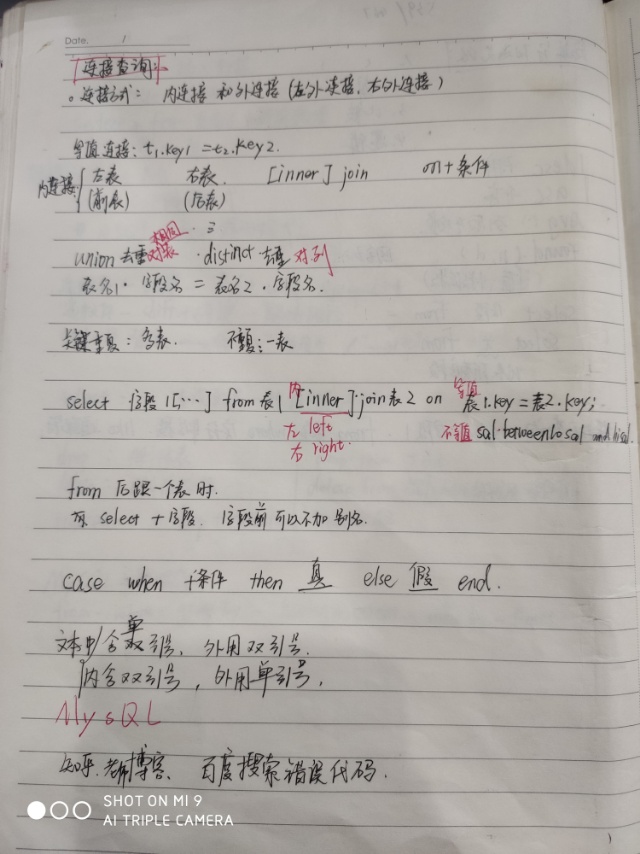 Date. 1
连接查询
。连接方式: 内连接 和外连接 (左外连接、右外连接)
等值连接: t1.key1 = t2.key2.
内连接 左表 右表. [inner] join on+条件
(前表) (后表)
相同
union 去重 对表 . distinct 去重 对列
表名1 . 字段名 = 表名2 . 字段名.
重复: 多表. 不重复: 一表
select 字段1[…] from 表1 [inner] join 表2 on 表1.key = 表2.key;
内 等值
左 left 不等值 sal between losal and hisal
右 right.
from 后跟一个表时.
select + 字段. 字段前可以不加别名.
case when +条件 then 真 else 假 end.
文本中/含单引号, 外用双引号.
内含双引号, 外用单引号,
MySQL
知乎. 老师博客、百度搜索错误代码.
SHOT ON MI 9
AI TRIPLE CAMERA